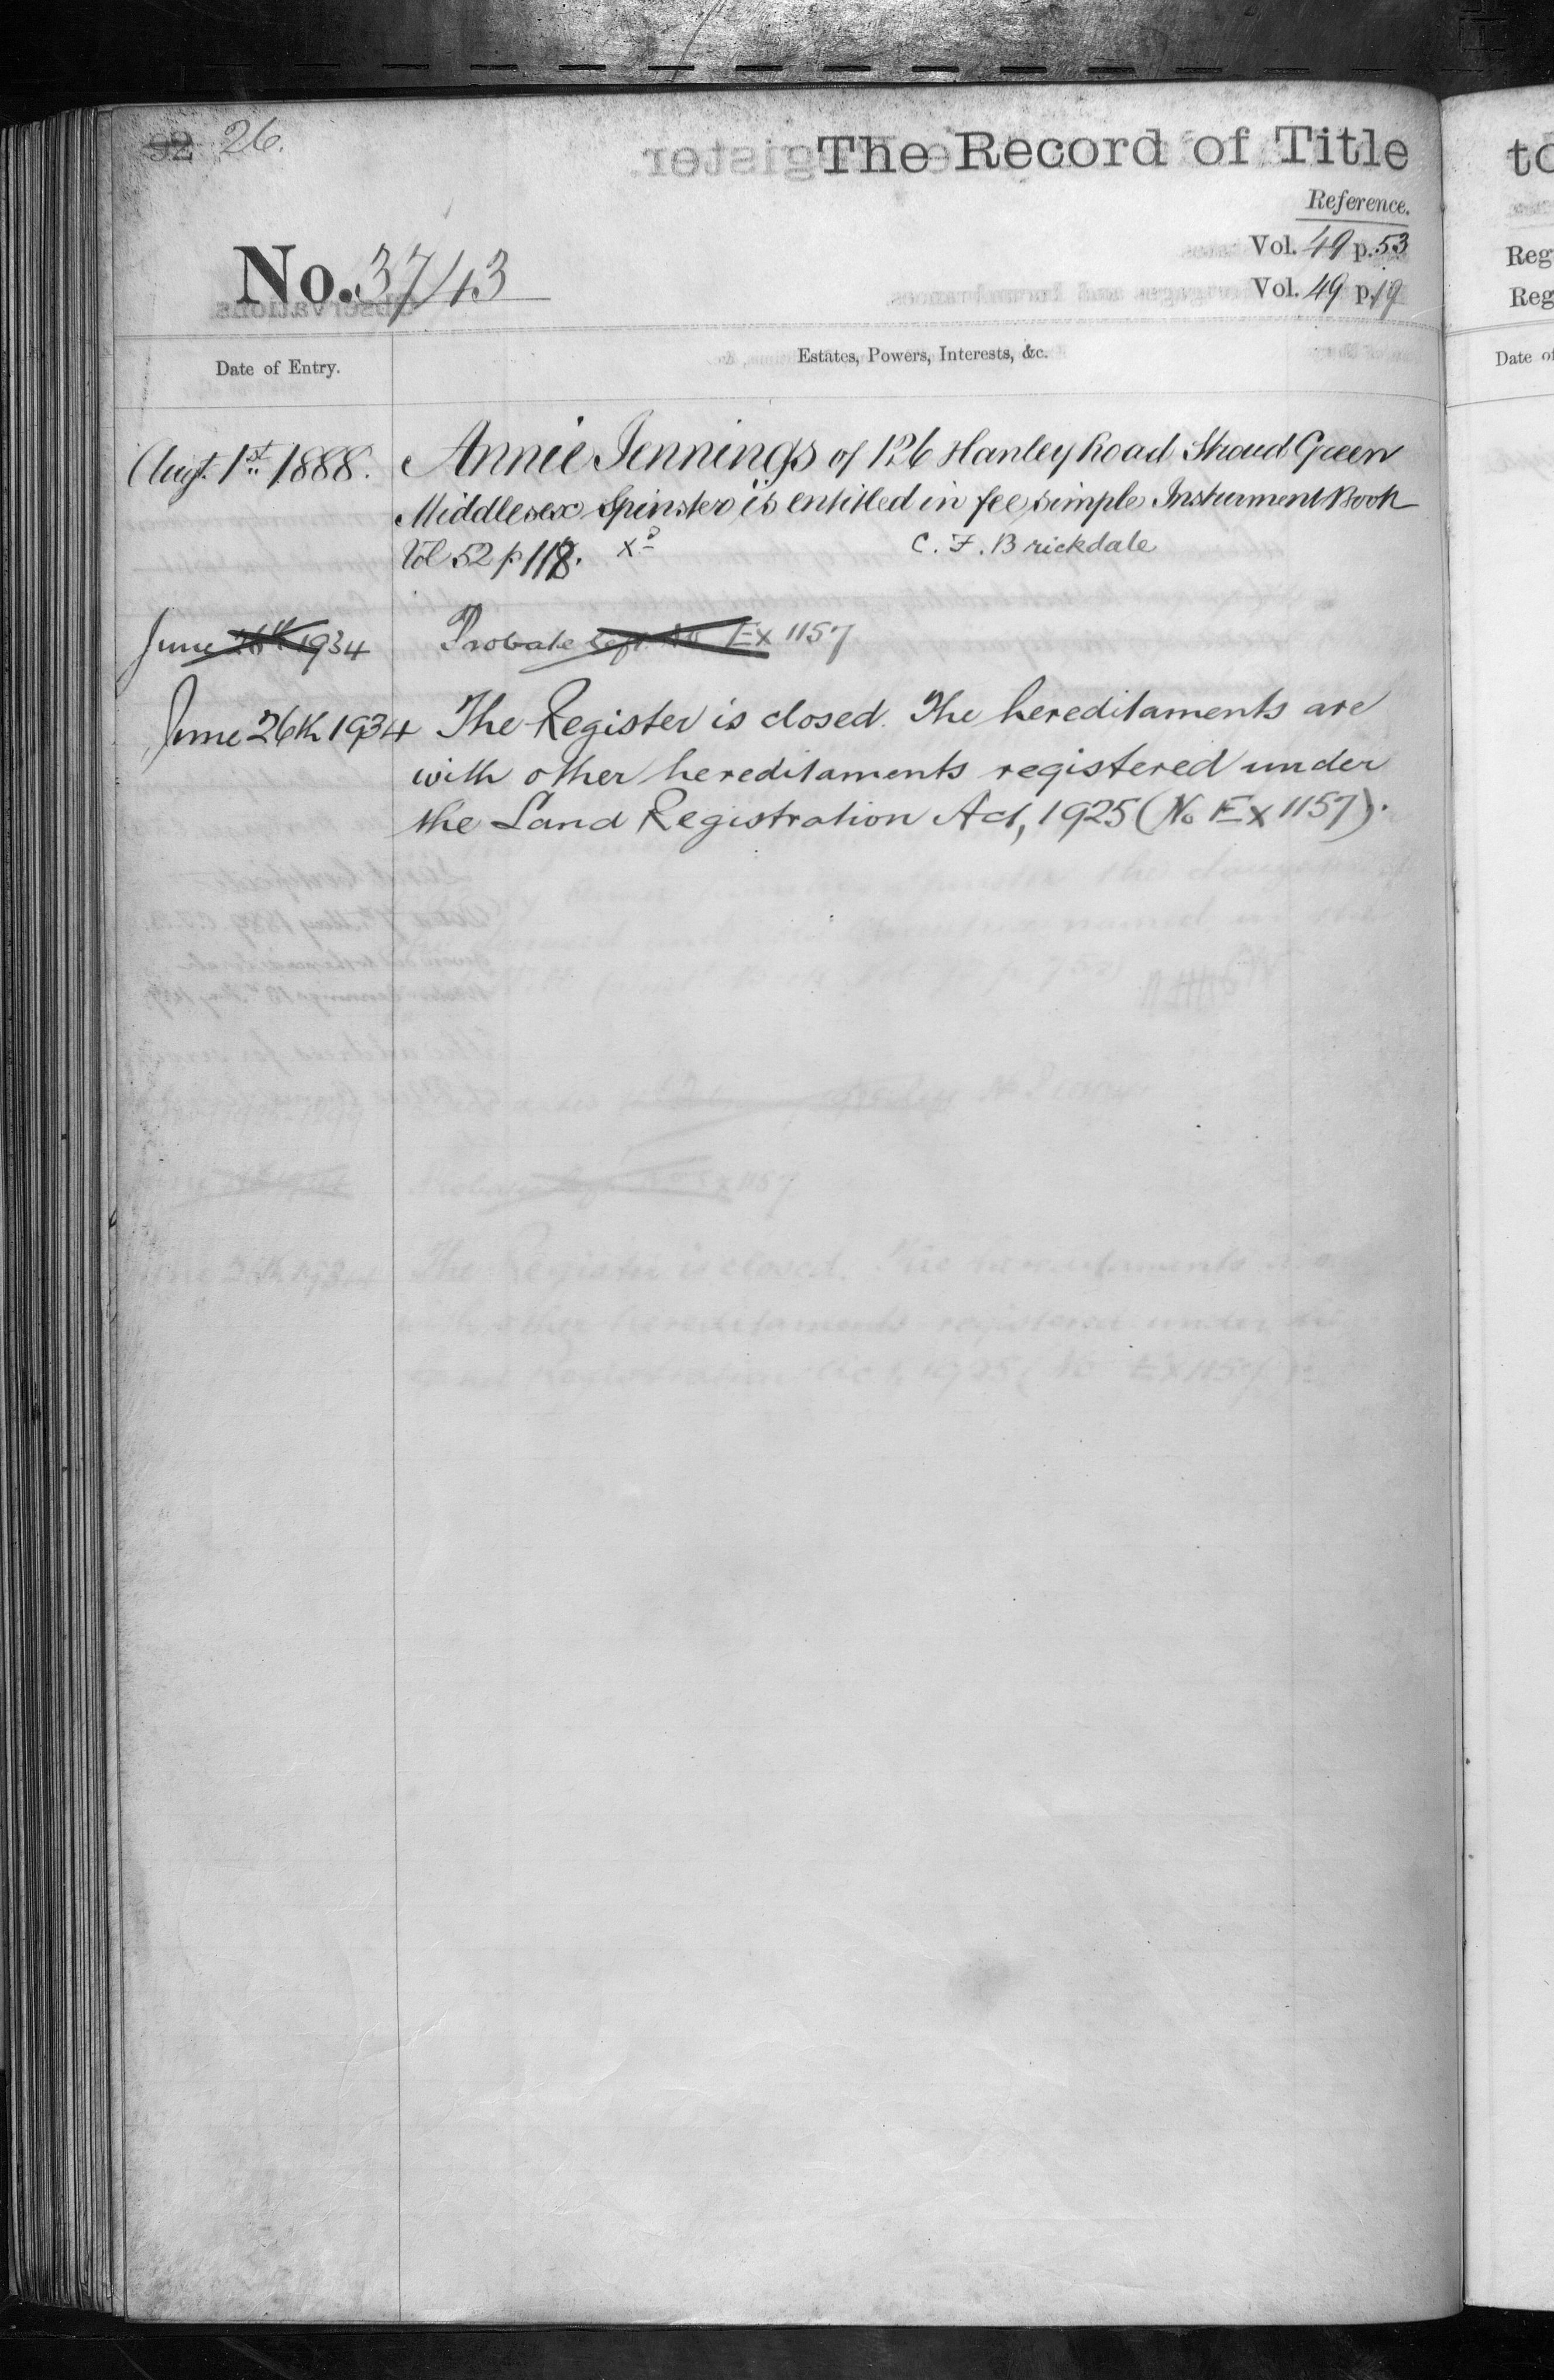 92 26.
The Record of Title
Reference.
No. 37/13
Vol. 49 p. 53
Vol. 49 p. 19
Date of Entry.
Estates, Powers, Interests, &c.
Augt. 1st 1888. Annie Jennings of 126 Hanley Road Stroud Green
Middlesex Spinster is entitled in fee simple Instrument Book
Vol 52 p 118. Xd C. F. Brickdale
June 26th 1934 Probate Ex 1157
June 26th 1934 The Register is closed. The hereditaments are
with other hereditaments registered under
the Land Registration Act, 1925 (No Ex 1157).
to
Reg
Reg
Date of